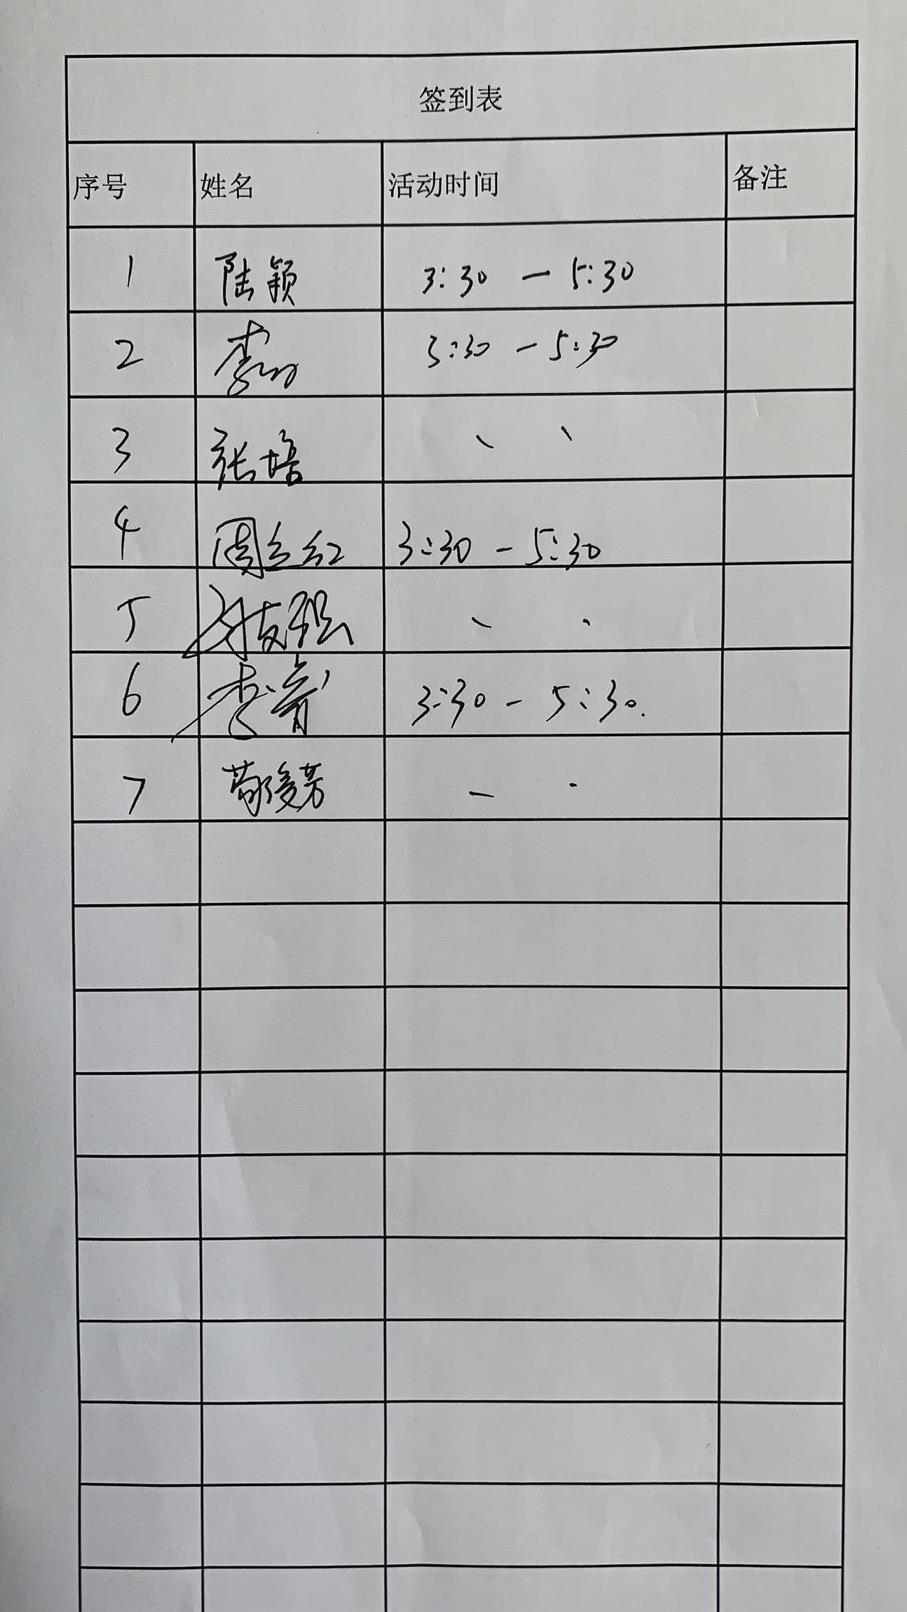 签到表
序号 姓名 活动时间 备注
1 陆颖 3:30 — 5:30
2 李 3:30 — 5:30
3 张培 、 、
4 周立红 3:30 — 5:30
5 友强 、 、
6 李 3:30 — 5:30.
7